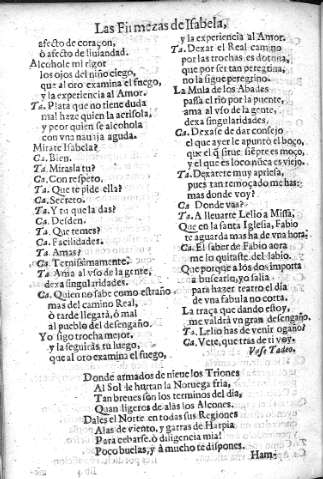 Las Firmezas de Isabela,
afecto de coraçon,
ò afecto de liuiandad.
Alcohole mi rigor
los ojos del niño ciego,
que al oro examina el fuego,
y la experiencia al Amor.
Ta. Plata que no tiene duda
mal haze quien la acrisola,
y peor quien se alcohola
con vna nauaja aguda.
Mirate Isabela?
Ca. Bien.
Ta. Mirasla tu?
Ca. Con respeto.
Ta. Que te pide ella?
Ca. Secreto.
Ta. Y tu que la das?
Ca. Desden.
Ta. Que temes?
Ca. Facilidades.
Ta. Amas?
Ca. Ternissimamente.
Ta. Ama al vso de la gente,
dexa singularidades.
Ca. Quien no sabe como estraño
mas del camino Real,
ò tarde llegarà, ò mal
al pueblo del desengaño.
Yo sigo trocha mejor,
y la seguirás tu luego,
que al oro examina el fuego,
y la experiencia al Amor.
Ta. Dexar el Real camino
por las trochas es dotrina,
que por ser tan peregrina,
no la sigue peregrino.
La Mula de los Abades
passa el rio por la puente,
ama al vso de la gente,
dexa singularidades.
Ca. Dexase de dar consejo
el que ayer le apuntò el boço,
que el q̃ sirue siẽpre es moço,
y el que es loco nũca es viejo.
Ta. Dexarete muy apriessa,
pues tan remoçado me has:
mas donde voy?
Ca. Donde vas?
Ta. A lleuarte Lelio a Missa,
Que en la santa Iglesia, Fabio
te aguarda mas ha de vna hora.
Ca. El saber de Fabio aora
me lo quitaste del labio.
Que porque a los dos importa
a buscarlo, yo salia
para hazer teatro el dia
de vna fabula no corta.
La traça que dando estoy,
me valdrà vn gran desengaño.
Ta. Lelio has de venir ogaño?
Ca. Vete, que tras de ti voy.
Vase Tadeo.
Donde armados de nieue los Triones
Al Sol le hurtan la Noruega fria,
Tan breues son los terminos del dia,
Quan ligeros de alas los Alcones.
Dales el Norte en todas sus Regiones
Alas de viento, y garras de Harpia
Para cebarse. ò diligencia mia!
Poco buelas, y à mucho te dispones.
Ham-